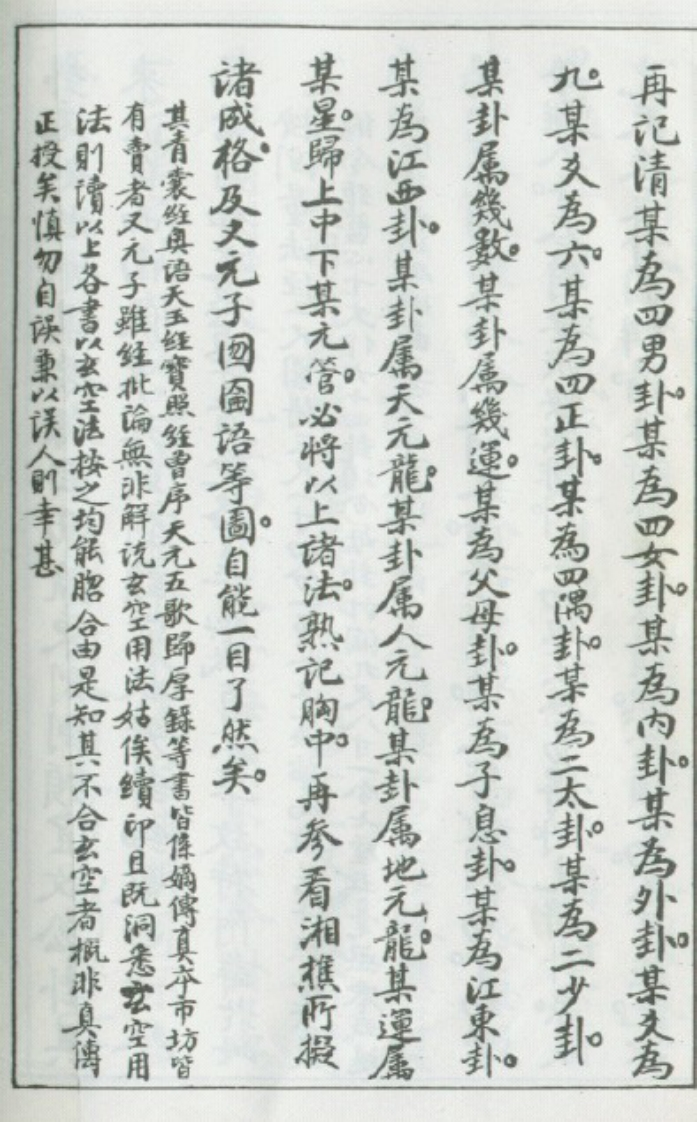 再记清某為四男卦。某為四女卦。某為内卦。某為外卦。某爻為
九。某爻為六。某為四正卦。某為四隅卦。某為二太卦。某為二少卦。
某卦属幾數。某卦属幾運。某為父母卦。某為子息卦。某為江東卦。
某為江西卦。某卦属天元龍。某卦属人元龍。某卦属地元龍。某運属
某星。歸上中下某元管。必將以上諸法。熟记胸中。再参看湘樵所擬
諸成格及文元子囫圇語等圖。自能一目了然矣。
其青囊經奥语天玉經寶照經曾序天元五歌歸厚錄等書皆係嫡傳真本市坊皆
有賣者文元子雖經批論無非解说玄空用法姑俟續印且既洞悉玄空用
法則讀以上各書以玄空法按之均能脗合由是知其不合玄空者概非真傳
正授矣慎勿自误兼以误人則幸甚